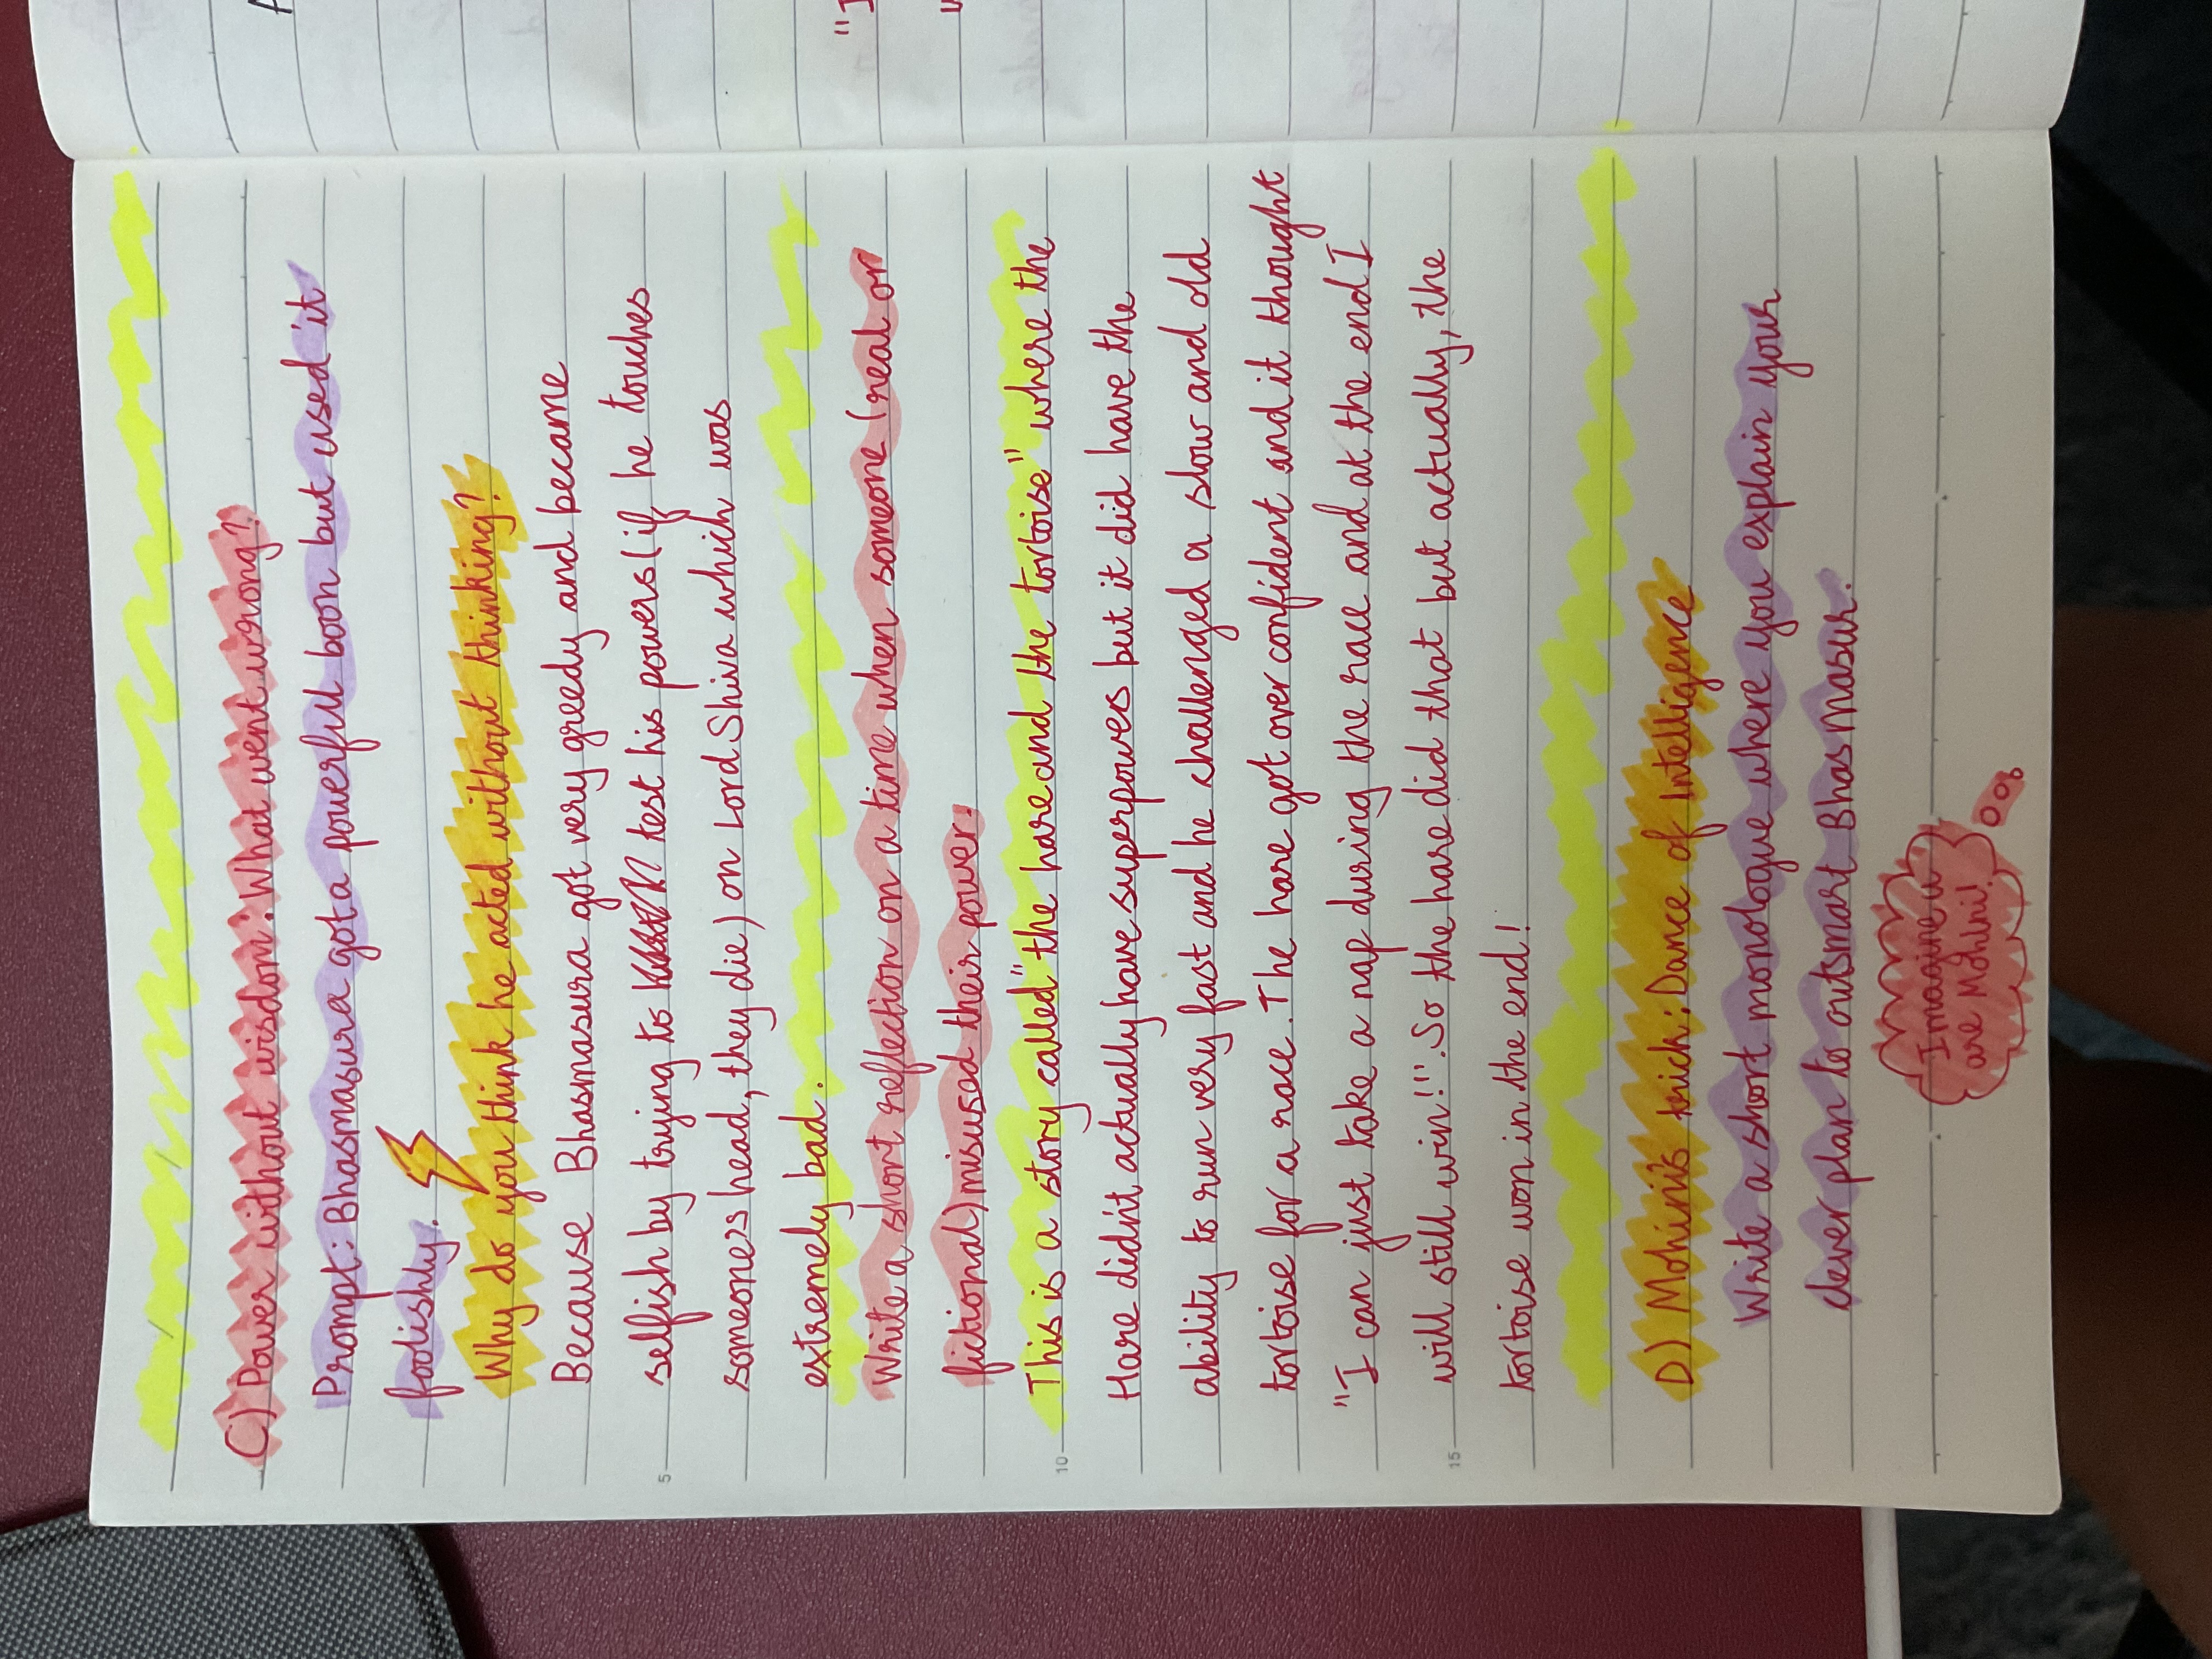 C) Power without wisdom: What went wrong?
Prompt: Bhasmasura got a powerful boon but used it
foolishly.
Why do you think he acted without thinking?
Because Bhasmasura got very greedy and became
selfish by trying to test his powers (if he touches
someone's head, they die) on Lord Shiva which was
extremely bad.
Write a short reflection on a time when someone (real or
fictional) misused their power.
This is a story called "the hare and the tortoise" where the
Hare didn't actually have superpowes but it did have the
ability to run very fast and he challenged a slow and old
tortoise for a race. The hare got over confident and it thought
"I can just take a nap during the race and at the end I
will still win!!". So the hare did that but actually, the
tortoise won in the end!
D) Mohini's trick: Dance of Intelligence
Write a short monologue where you explain your
clever plan to outsmart Bhasmasur.
Imagine u
are Mohini!
5
10
15
"I